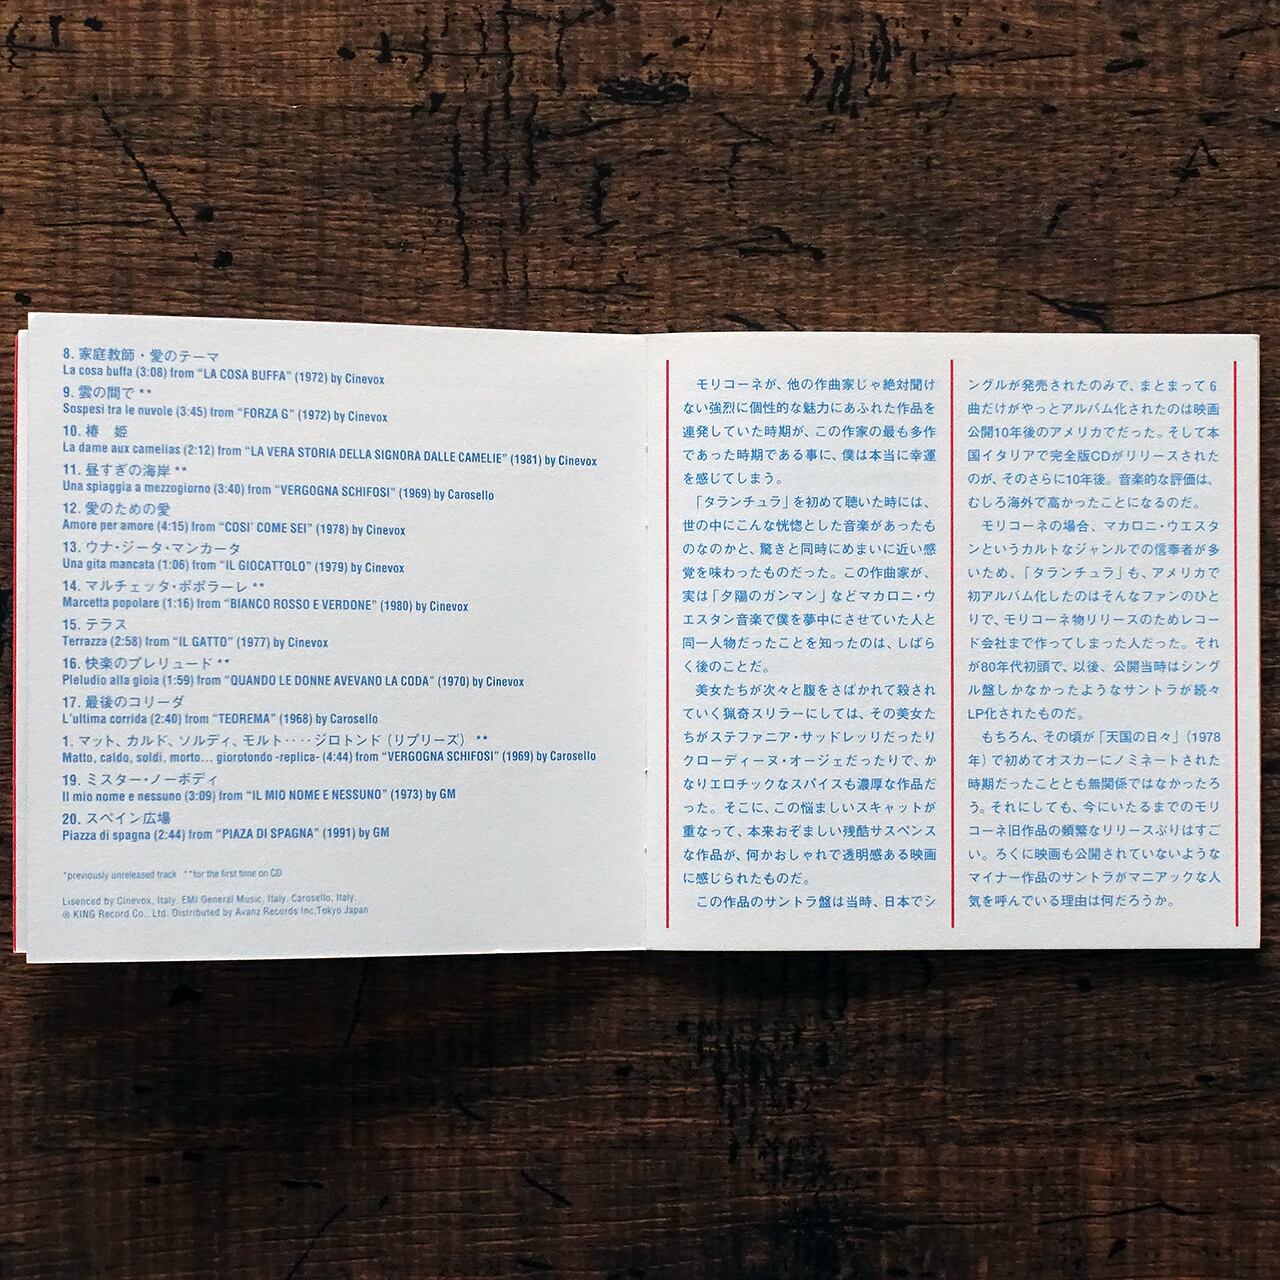 8. 家庭教師・愛のテーマ
La cosa buffa (3:08) from “LA COSA BUFFA” (1972) by Cinevox
9. 雲の間で **
Sospesi tra le nuvole (3:45) from “FORZA G” (1972) by Cinevox
10. 椿　姫
La dame aux camelias (2:12) from “LA VERA STORIA DELLA SIGNORA DALLE CAMELIE” (1981) by Cinevox
11. 昼すぎの海岸 **
Una spiaggia a mezzogiorno (3:40) from “VERGOGNA SCHIFOSI” (1969) by Carosello
12. 愛のための愛
Amore per amore (4:15) from “COSI’ COME SEI” (1978) by Cinevox
13. ウナ・ジータ・マンカータ
Una gita mancata (1:06) from “IL GIOCATTOLO” (1979) by Cinevox
14. マルチェッタ・ポポラーレ **
Marcetta popolare (1:16) from “BIANCO ROSSO E VERDONE” (1980) by Cinevox
15. テラス
Terrazza (2:58) from “IL GATTO” (1977) by Cinevox
16. 快楽のプレリュード **
Pleludio alla gioia (1:59) from “QUANDO LE DONNE AVEVANO LA CODA” (1970) by Cinevox
17. 最後のコリーダ
L’ultima corrida (2:40) from “TEOREMA” (1968) by Carosello
1. マット、カルド、ソルディ、モルト‥‥ジロトンド（リプリーズ） **
Matto, caldo, soldi, morto... giorotondo -replica- (4:44) from “VERGOGNA SCHIFOSI” (1969) by Carosello
19. ミスター・ノーボディ
Il mio nome e nessuno (3:09) from “IL MIO NOME E NESSUNO” (1973) by GM
20. スペイン広場
Piazza di spagna (2:44) from “PIAZA DI SPAGNA” (1991) by GM
*previously unreleased track **for the first time on CD
Lisenced by Cinevox, Italy. EMI General Music, Italy. Carosello, Italy.
℗ KING Record Co., Ltd. Distributed by Avanz Records Inc,Tokyo Japan
モリコーネが、他の作曲家じゃ絶対聞け
ない強烈に個性的な魅力にあふれた作品を
連発していた時期が、この作家の最も多作
であった時期である事に、僕は本当に幸運
を感じてしまう。
「タランチュラ」を初めて聴いた時には、
世の中にこんな恍惚とした音楽があったも
のなのかと、驚きと同時にめまいに近い感
覚を味わったものだった。この作曲家が、
実は「夕陽のガンマン」などマカロニ・ウ
エスタン音楽で僕を夢中にさせていた人と
同一人物だったことを知ったのは、しばら
く後のことだ。
美女たちが次々と腹をさばかれて殺され
ていく猟奇スリラーにしては、その美女た
ちがステファニア・サッドレッリだったり
クローディーヌ・オージェだったりで、か
なりエロチックなスパイスも濃厚な作品だ
った。そこに、この悩ましいスキャットが
重なって、本来おぞましい残酷サスペンス
な作品が、何かおしゃれで透明感ある映画
に感じられたものだ。
この作品のサントラ盤は当時、日本でシ
ングルが発売されたのみで、まとまって6
曲だけがやっとアルバム化されたのは映画
公開10年後のアメリカでだった。そして本
国イタリアで完全版CDがリリースされた
のが、そのさらに10年後。音楽的な評価は、
むしろ海外で高かったことになるのだ。
モリコーネの場合、マカロニ・ウエスタ
ンというカルトなジャンルでの信奉者が多
いため、「タランチュラ」も、アメリカで
初アルバム化したのはそんなファンのひと
りで、モリコーネ物リリースのためレコー
ド会社まで作ってしまった人だった。それ
が80年代初頭で、以後、公開当時はシング
ル盤しかなかったようなサントラが続々
LP化されたものだ。
もちろん、その頃が「天国の日々」（1978
年）で初めてオスカーにノミネートされた
時期だったこととも無関係ではなかったろ
う。それにしても、今にいたるまでのモリ
コーネ旧作品の頻繁なリリースぶりはすご
い。ろくに映画も公開されていないような
マイナー作品のサントラがマニアックな人
気を呼んでいる理由は何だろうか。